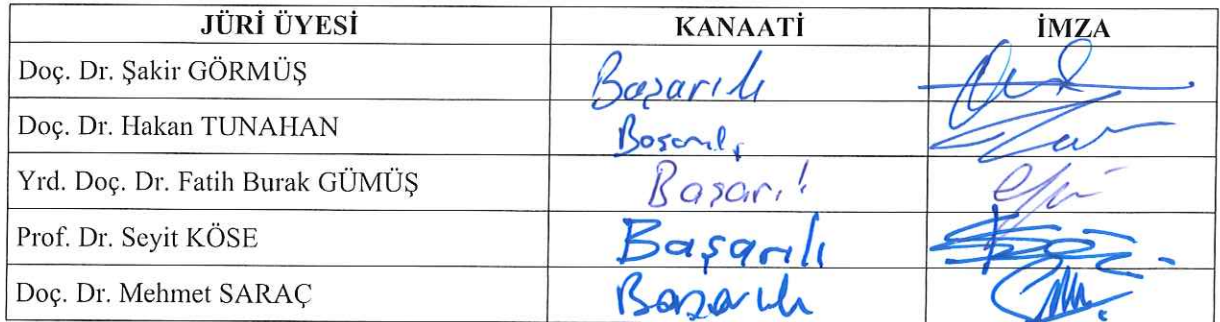 JÜRİ ÜYESİ KANAATİ İMZA
Doç. Dr. Şakir GÖRMÜŞ Başarılı
Doç. Dr. Hakan TUNAHAN Başarılı
Yrd. Doç. Dr. Fatih Burak GÜMÜŞ Başarılı
Prof. Dr. Seyit KÖSE Başarılı
Doç. Dr. Mehmet SARAÇ Başarılı